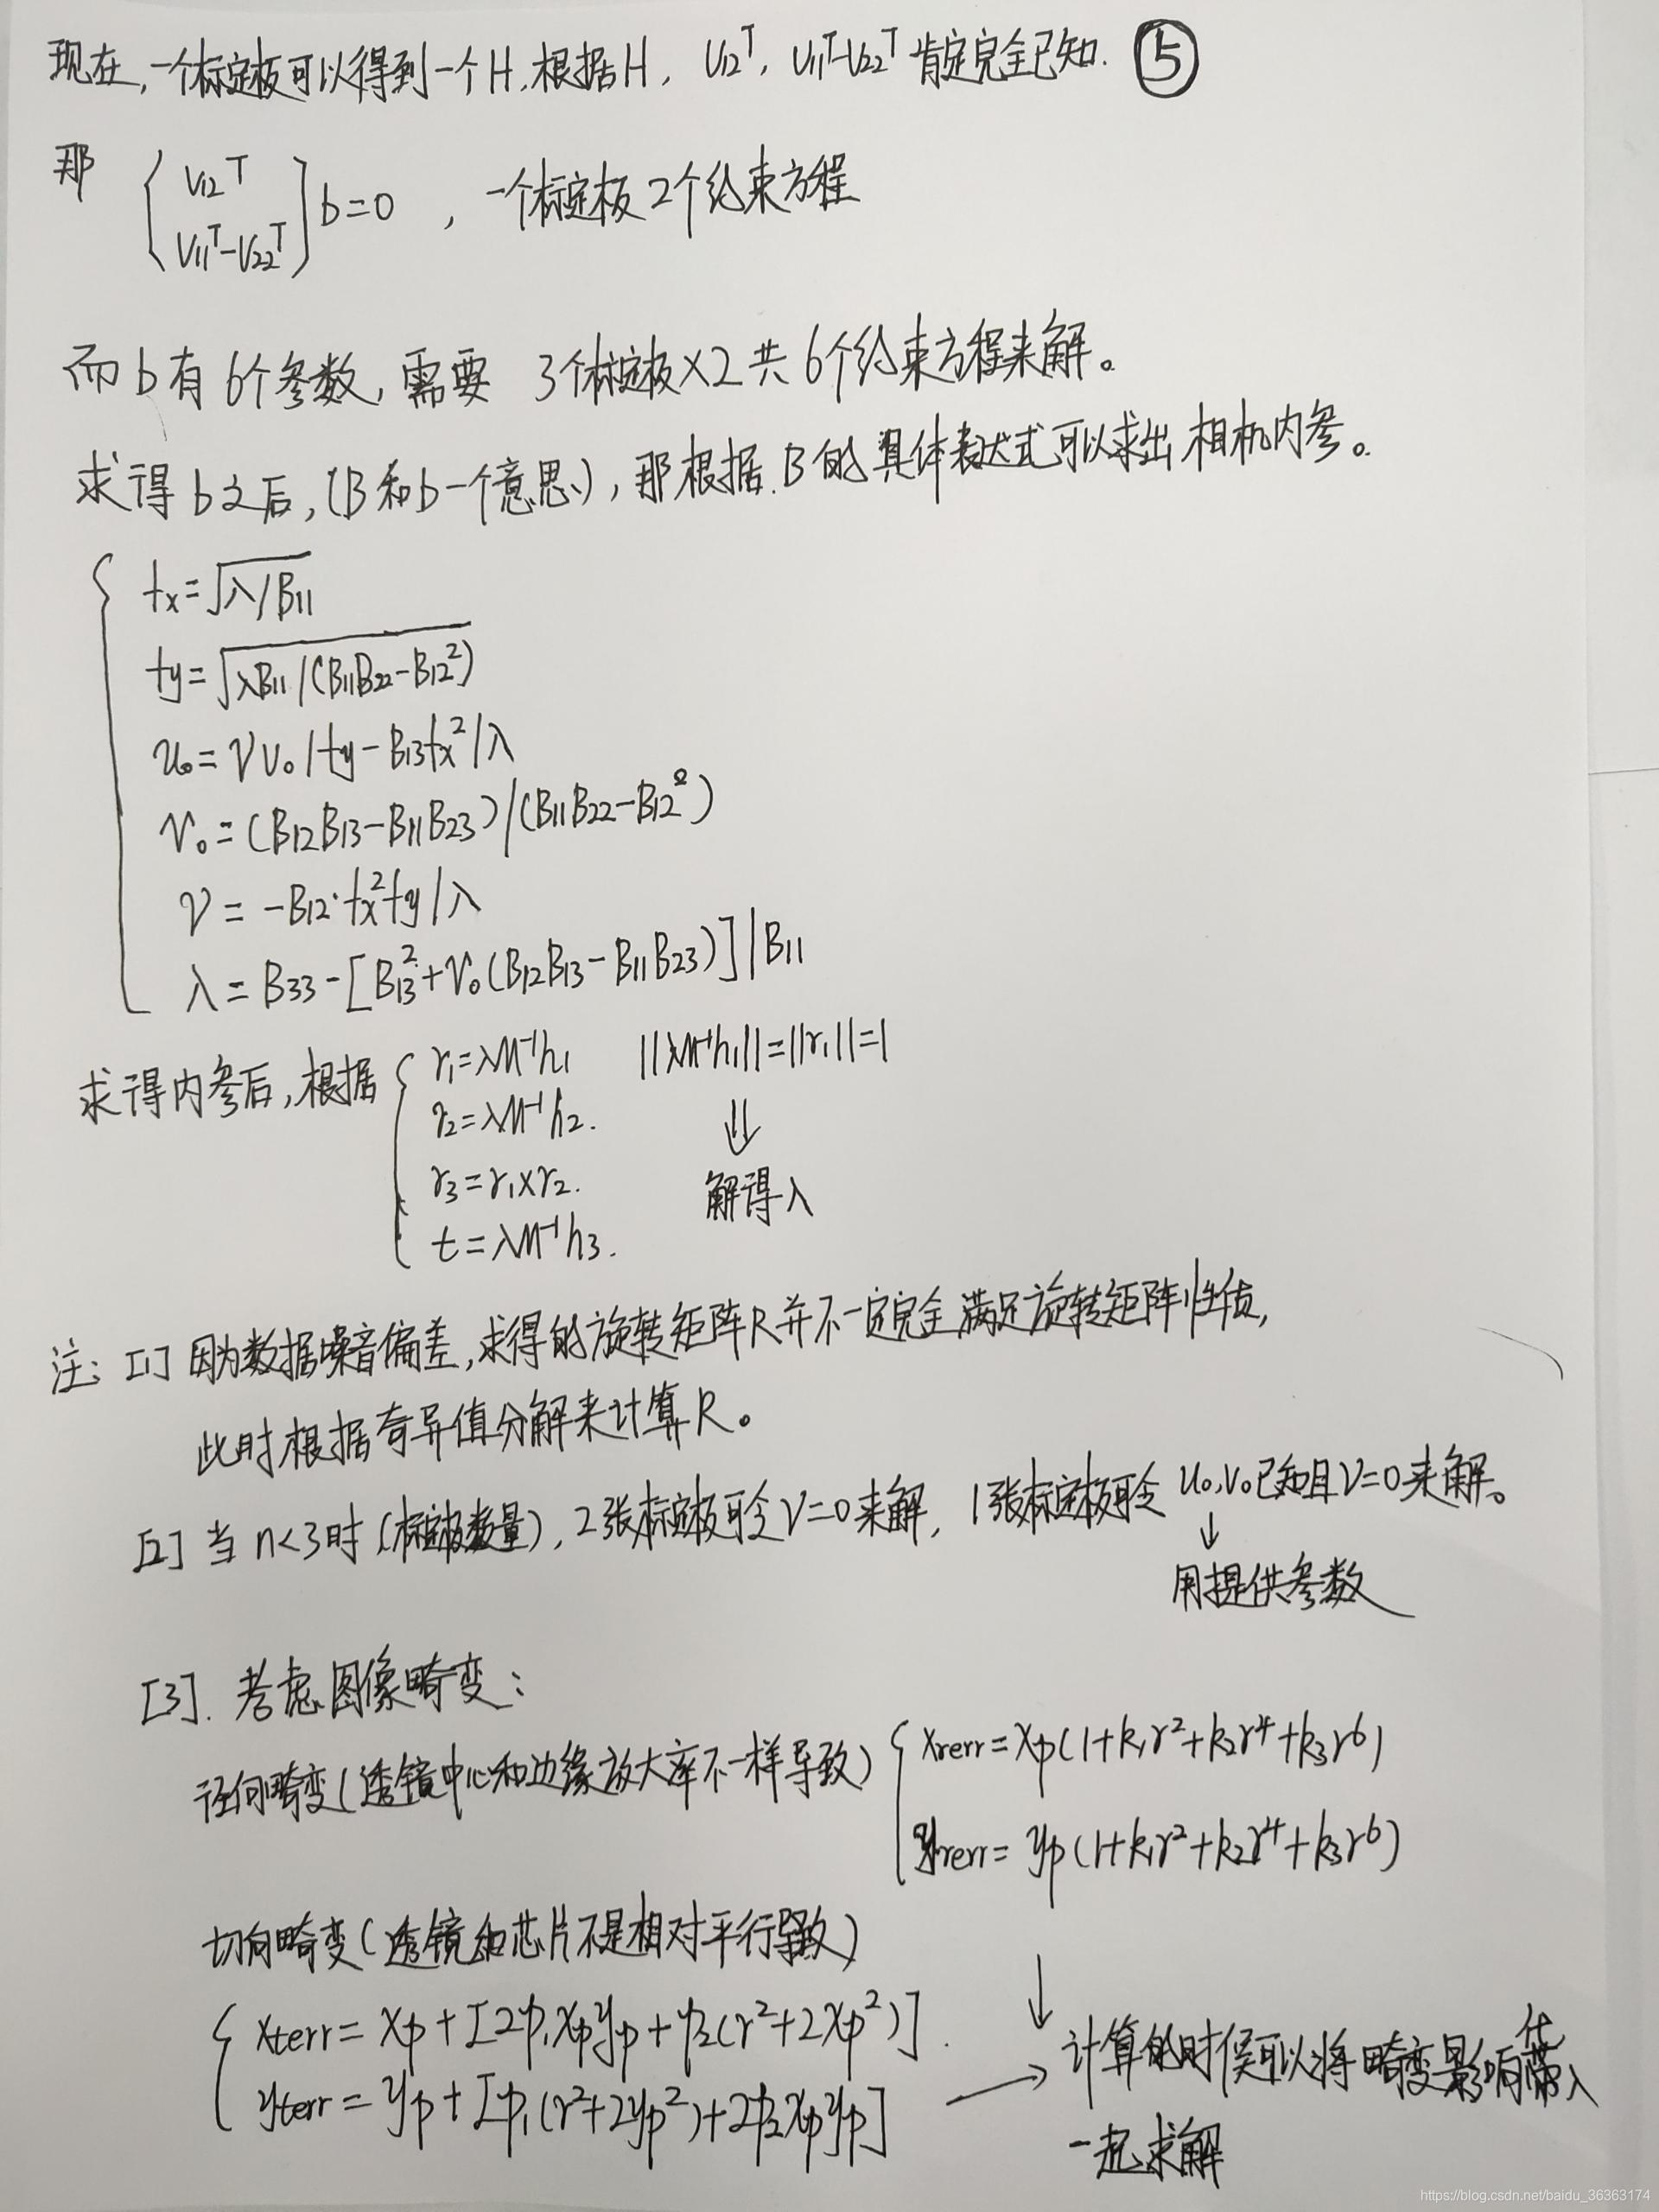 现在,一个标定板可以得到一个H,根据H, V12^T, V11^T-V22^T 肯定完全已知. ⑤
那 [V12^T
V11^T-V22^T] b=0 , 一个标定板2个约束方程
而b有6个参数,需要 3个标定板×2共6个约束方程来解。
求得b之后,(B和b一个意思),那根据B的具体表达式可以求出相机内参。
fx=√(λ/B11)
fy=√(λB11/(B11B22-B12²))
u0=γv0/fy-B13fx²/λ
v0=(B12B13-B11B23)/(B11B22-B12²)
γ=-B12·fx²fy/λ
λ=B33-[B13²+v0(B12B13-B11B23)]/B11
求得内参后,根据 { r1=λM⁻¹h1 ||λM⁻¹h1||=||r1||=1
r2=λM⁻¹h2. ⇓
r3=r1×r2. 解得λ
t=λM⁻¹h3.
注: [1] 因为数据噪音偏差,求得的旋转矩阵R并不一定完全满足旋转矩阵性质,
此时根据奇异值分解来计算R。
[2] 当n<3时(标定板数量), 2张标定板可令γ=0来解, 1张标定板可令 u0,v0已知且γ=0来解。
↓
用提供参数
[3]. 考虑图像畸变:
径向畸变(透镜中心和边缘放大率不一样导致) { xrerr=xp(1+k1r²+k2r⁴+k3r⁶)
yrerr=yp(1+k1r²+k2r⁴+k3r⁶)
切向畸变(透镜和芯片不是相对平行导致)
{ xterr=xp+[2p1xpyp+p2(r²+2xp²)].
yterr=yp+[p1(r²+2yp²)+2p2xpyp] → 计算的时候可以将畸变影响代入
一起求解
https://blog.csdn.net/baidu_36363174